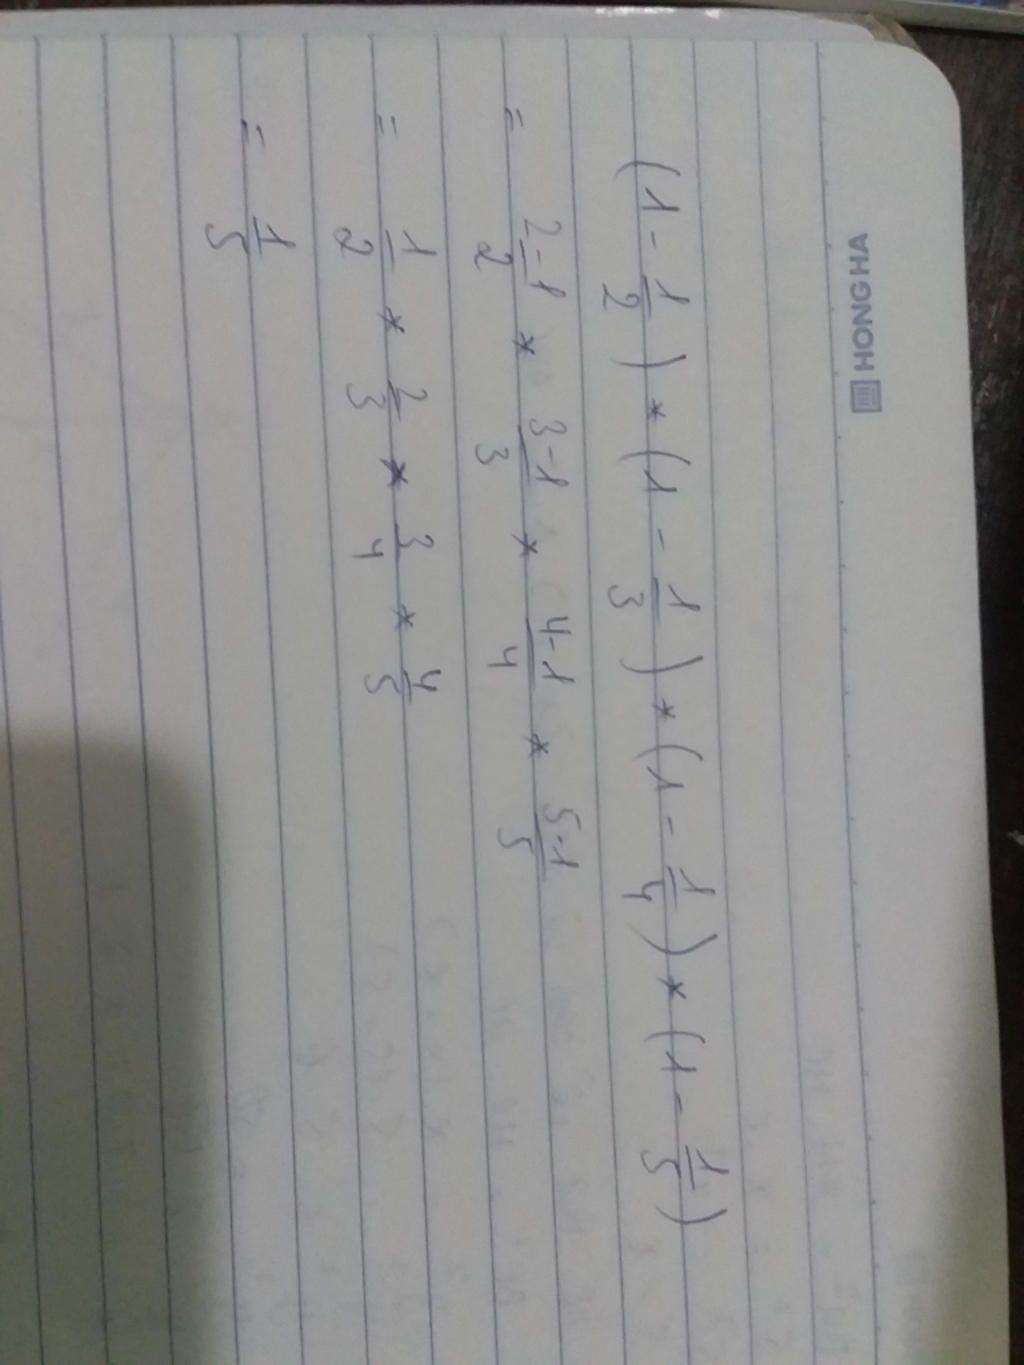 HONG HA
(1 - 1/2) * (1 - 1/3) * (1 - 1/4) * (1 - 1/5)
= 2-1/2 * 3-1/3 * 4-1/4 * 5-1/5
= 1/2 * 2/3 * 3/4 * 4/5
= 1/5